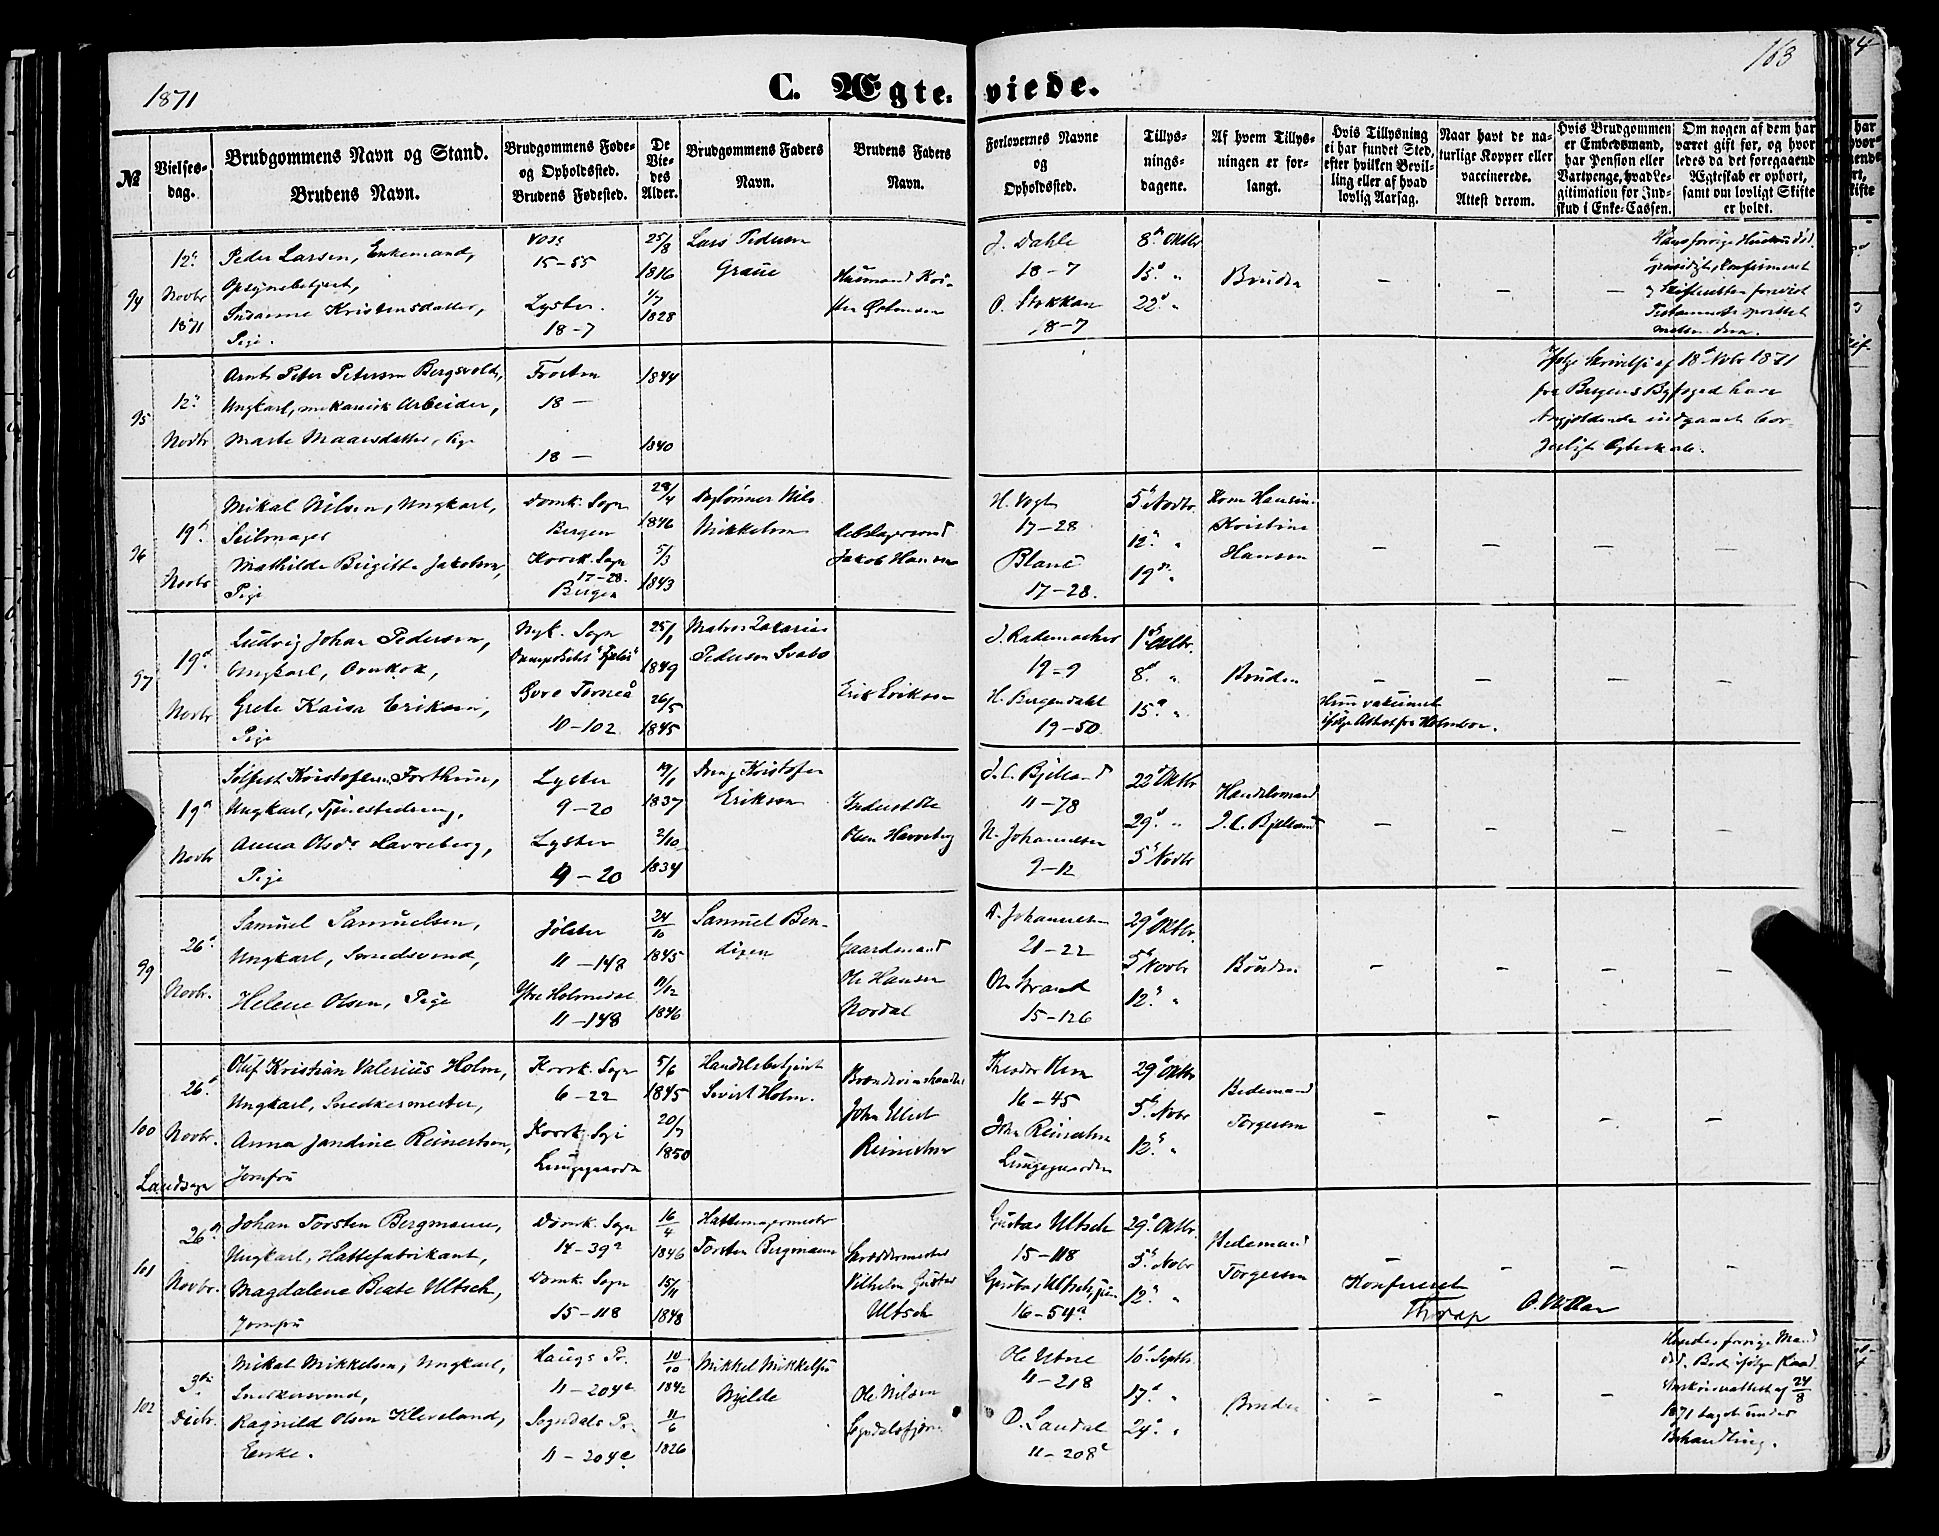 1871
C. Ægte-
viede.
163
№
Vielses-
dag.
Brudgommens Navn og Stand.
Brudens Navn.
Brudgommens Føde-
og Opholdssted.
Brudens Fødested.
De
Vie-
des
Alder.
Brudgommens Faders
Navn.
Brudens Faders
Navn.
Forlovernes Navne
og
Opholdssted.
Tillys-
nings-
dagene.
Af hvem Tillys-
ningen er for-
langt.
Hvis Tillysning
ei har fundet Sted,
efter hvilken Bevil-
ling eller af hvad
lovlig Aarsag.
Naar havt de na-
turlige Kopper eller
vaccinerede.
Attest derom.
Hvis Brudgommen
er Embedsmand,
har Pension eller
Vartpenge, hvad Le-
gitimation for Ind-
skud i Enke-Cassen.
Om nogen af dem har
været gift før, og hvor-
ledes da det foregaaende
Ægteskab er ophørt,
samt om lovligt Skifte
er holdt.
94
12te
Novbr
1871
Peder Larsen, Enkemand,
Opsynsbetjent,
Susanne Kristensdatter,
Pige.
Voss
15-55
Lyster.
18-7
25/8
1816
1/7
1828
Lars Pedersen
Graue
Husmand Kri-
J. Dahle
18-7
O. Stokkan
18-7
8de Oktbr
15de "
22de "
Bruden
-
-
-
95
12te
Novbr
Arnt Peter Petersen Bergsvold,
Ungkarl, mekanisk Arbeider,
Marte Maarsdatter, Pige
Frosten
18 -
18 -
1844
1840
Ifølge Skrivelse af 18de Nvbr 1871
fra Bergens Byfoged have
indgaaet bor-
gerligt Ægteskab.
96
19de
Novbr
Mikal Nilsen, Ungkarl,
Seilmager
Mathilde Birgitte Jakobsen,
Pige
Domk. Sogn
Bergen
Korsk. Sogn
17-28.
Bergen
28/4
1846
5/3
1843
Daglønner Nils
Mikkelsen
Rebslagersvend
Jakob Hansen
H. Vogt
17-28
Blauc
17-28.
5te Novbr.
12te "
19de "
Kone Hansine
Kristine
Hansen
-
-
-
-
97
19de
Novbr
Ludvig Johan Pedersen,
Ungkarl, Ovnkok,
Grete Kaisa Eriksen,
Pige
Nyk. Sogn
Dampskibet "Fjalir"
Øvre Torneå
10-102
25/1
1849
26/5
1845
Matros Zakarias
Pedersen Svabo
Erik Eriksen
J. Rademacher
19-9
H. Bergendahl
19-50
1ste Oktbr.
8de "
15de "
Bruden
-
Hun vakcineret
ifølge Attest fra Holmboe.
-
-
-
19de
Novbr
Solfest Kristofersen Forthun,
Ungkarl, Tjenestedreng,
Anna Olsdr Havreberg,
Pige
Lyster
9-20
Lyster
9-20
19/1
1837
2/10
1834
Dreng Kristofer
Eriksen
Inderst Ole
Olsen Havreberg
J. C. Bjelland
11-78
N. Johannesen
9-12
22de Oktbr
29de "
5te Novbr
Handelsmand
J. C. Bjelland
-
-
-
-
99
26de
Novbr.
Samuel Samuelsen,
Ungkarl, Smedsvend,
Helene Olsen, Pige
Jølster
11-148
Ytre Holmedal
11-148
24/10
1845
11/12
1846
Samuel Ben-
dixen
Gaardmand
Ole Hansen
Nordal
T. Johannesen
21-22
Ole Brand
15-126
29de Oktbr.
5te Novbr
12te "
Bruden
-
-
-
-
100
26de
Novbr.
Landsogn
Oluf Kristian Valerius Holm,
Ungkarl, Snedkermester,
Anna Jandine Reinertsen,
Jomfru
Korsk. Sogn
6-22
Korsk. Sogn
Lungegaarden
5/6
1845
20/7
1850
Handelsbetjent
Sivert Holm.
Brændevinshandler
John Ellert
Reinertsen
Theodor Klem
16-45
John Reinertsen
Lungegaarden
29de Oktbr
5te Nvbr
12te "
Bedemand
Torgersen
-
-
-
-
101
26de
Novbr.
Johan Torsten Bergmann,
Ungkarl, Hattefabrikant,
Magdalene Beate Ultsch,
Jomfru
Domk. Sogn
14-39a
Domk. Sogn
15-118
16/4
1846
15/11
1848
Hattemagermester
Torsten Bergmann
Skræddermester
Vilhelm Gustav
Ultsch
Gustav Ultsch
15-118
Gustav Ultsch, jun.
16-54a
29de Oktbr
5te Novbr
12te "
Bedemand
Torgersen
-
-
-
-
Konfereret
Thorup
102
3die
Decbr.
Mikal Mikkelsen, Ungkarl,
Snedkersvend,
Ragnild Olsen Kleveland,
Enke.
Haugs Pr.
11-204e
Sogndals Pr.
11-204e
10/10
1842
11/6
1826
Mikkel Mikkelsen
Mjelde
Ole Nilsen
Sogndalsfjæren
Ole Utne
11-218
O. Laudal
11-208c
10de Septbr.
17de "
24de "
Bruden
-
-
-
Hendes forrige Mand
død. Boet ifølge
Skifteattest af 24/8
1871 taget under
Behandling.